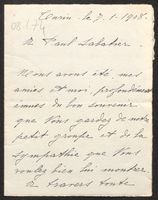 le 7. 1. 1908.
08/74
A Paul Sabatier
Nous avons été mes
amies et moi profondément
émues du bon souvenir
que Vous gardez de notre
petit groupe et de la
sympathie que Vous
voulez bien lui montrer.
A travers toute